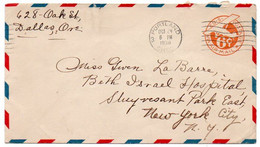 628-Oak St,
Dallas, Ore
PORTLAND
6 PM
6¢
Miss Gwen La Barre,
Beth Israel Hospital
Stuyvesant Park East,
New York City,
N. Y.